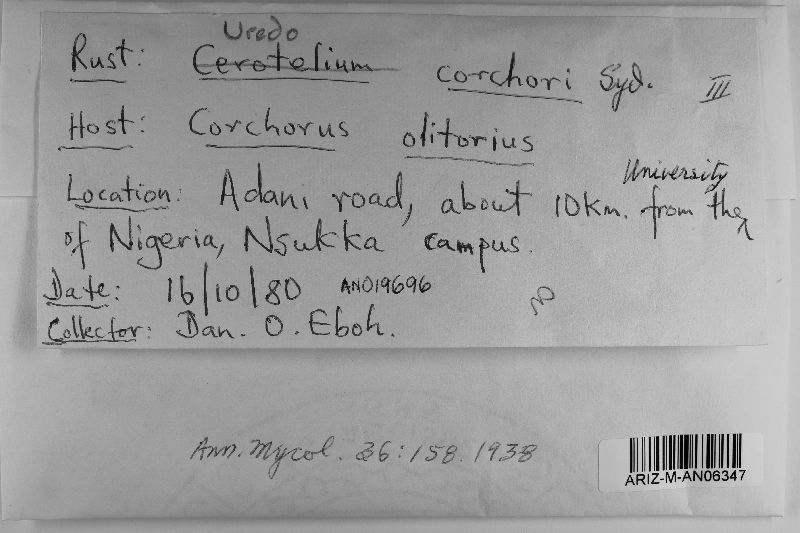 Uredo
Rust: Cerotelium corchori Syd. III
Host: Corchorus olitorius
Location: Adani road, about 10km. from the University
of Nigeria, Nsukka campus.
Date: 16/10/80 AN019696
Collector: Dan. O. Eboh.
Ann. Mycol. 36:158. 1938
ARIZ-M-AN06347